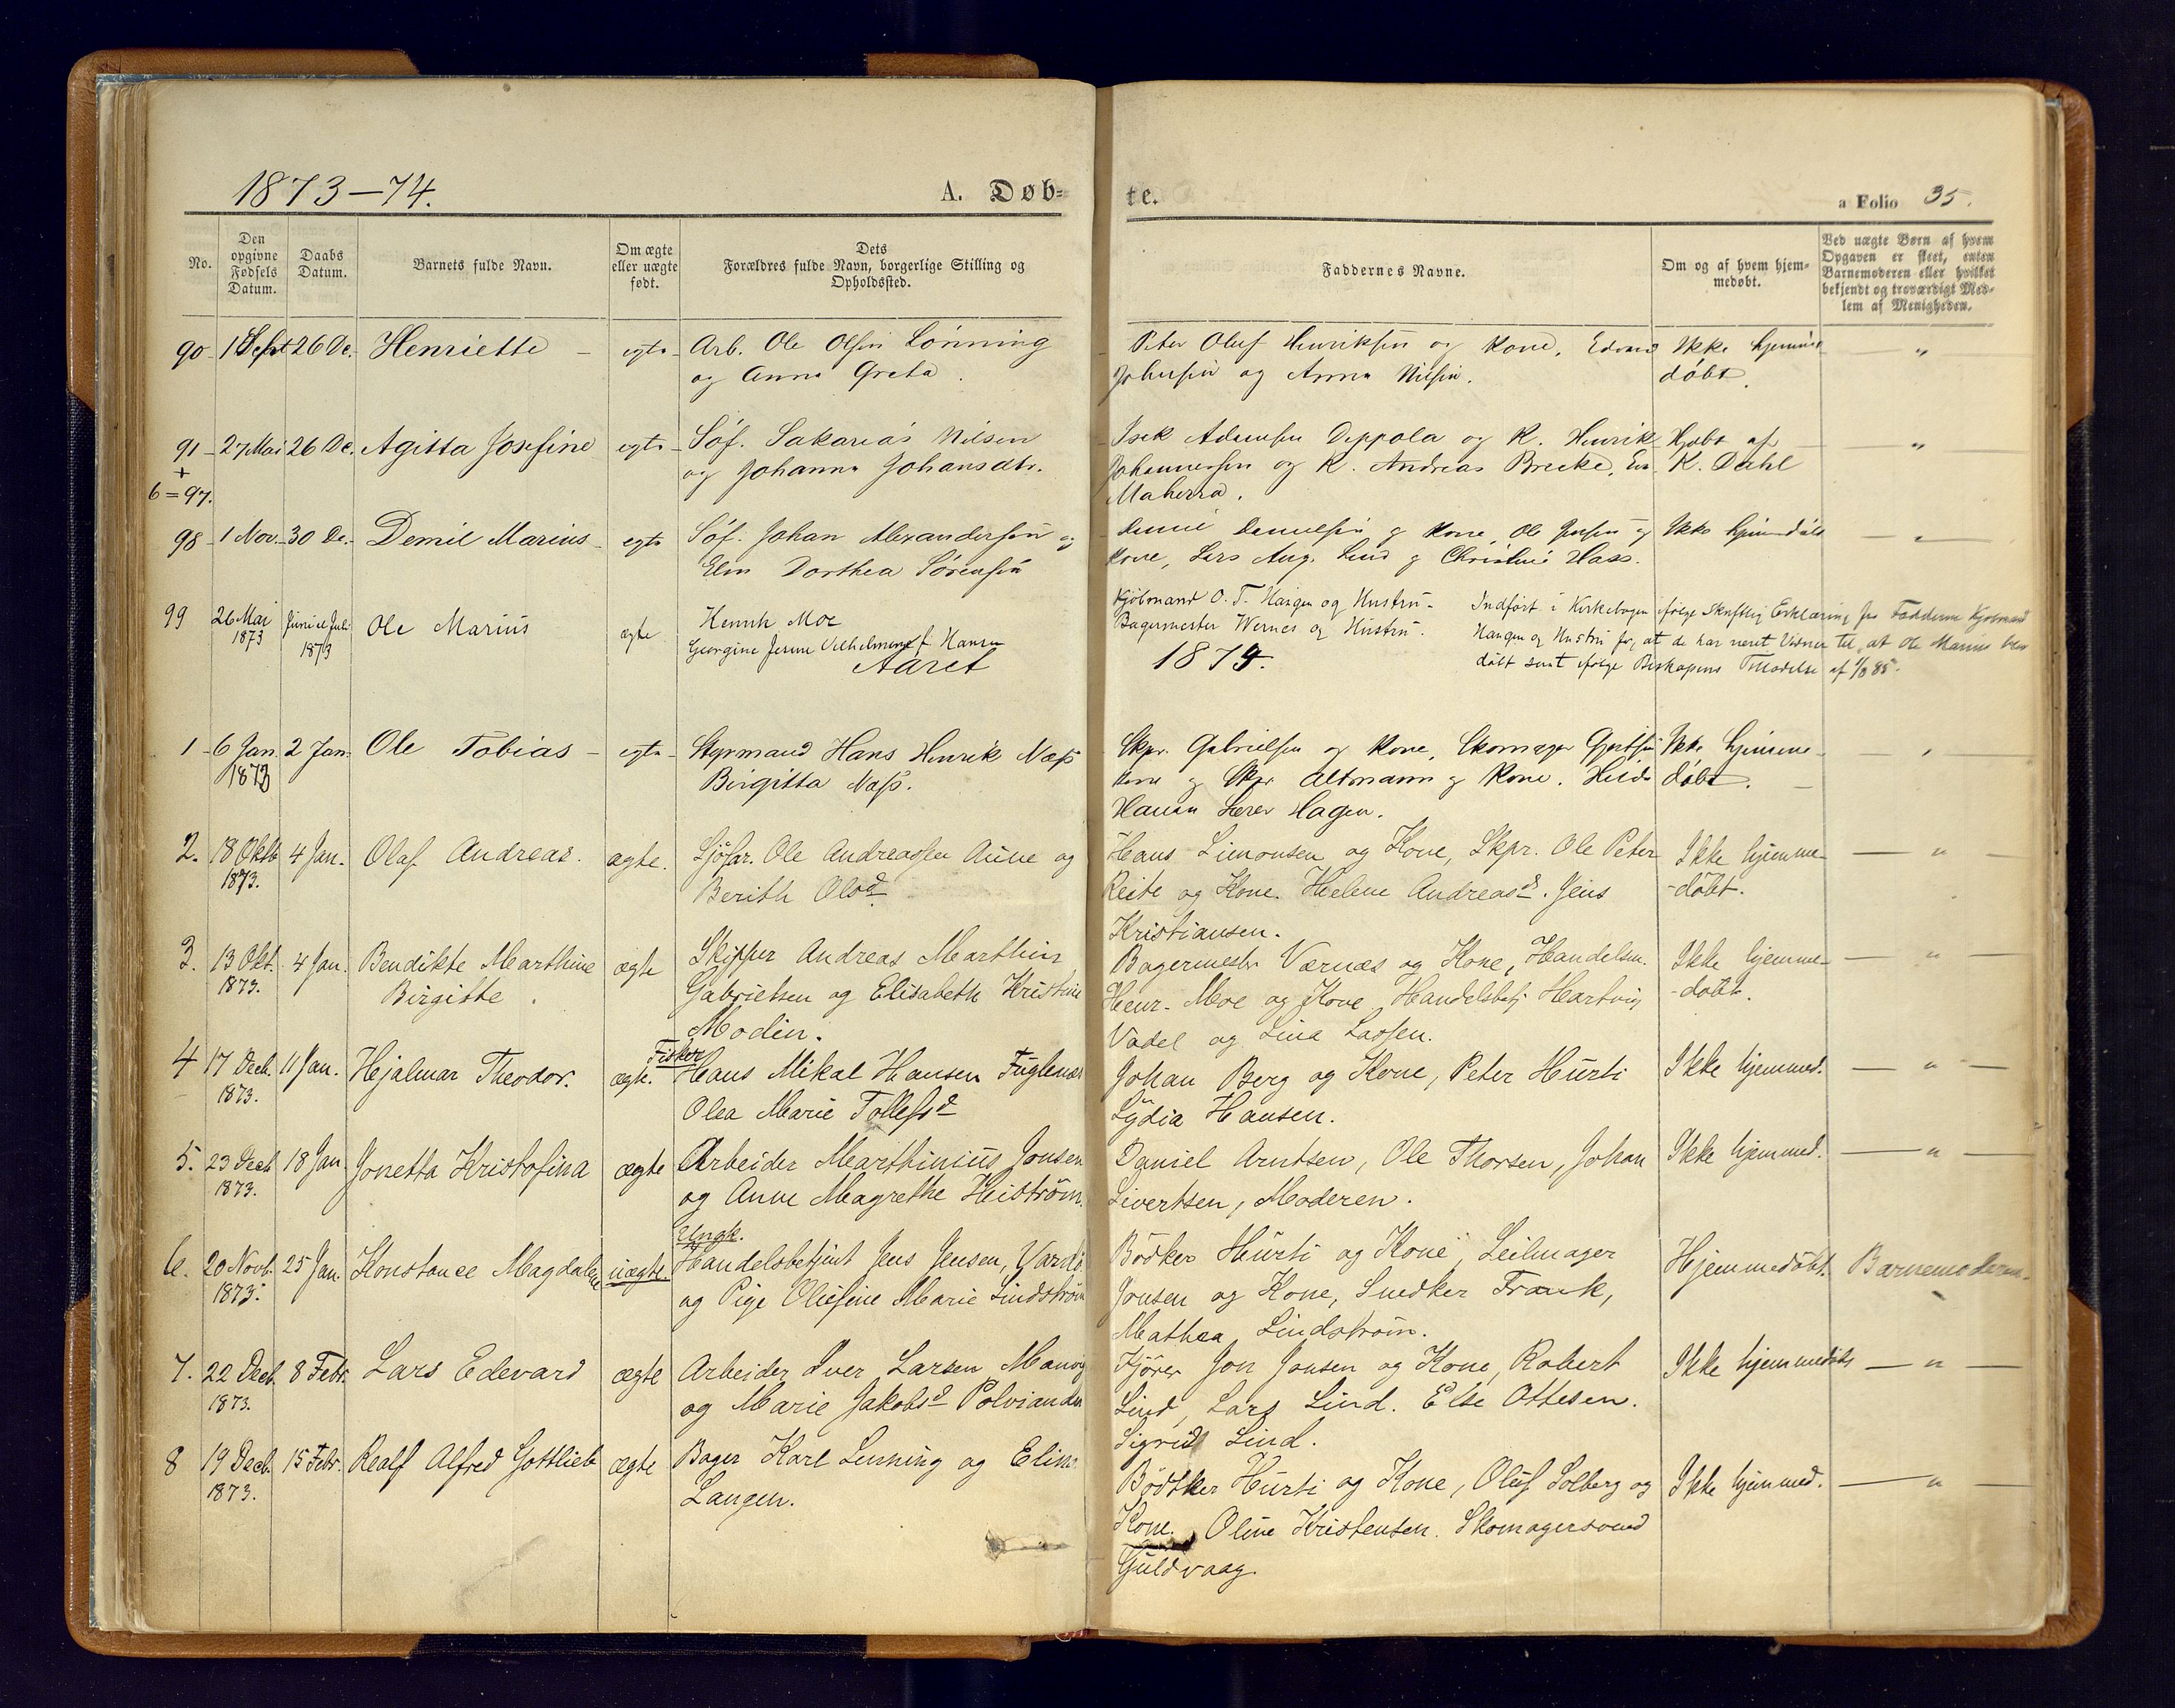 1873–74.
A. Døb-
te.
a Folio 35.
No.
Den opgivne Fødsels Datum.
Daabs Datum.
Barnets fulde Navn.
Om ægte eller uægte født.
Dets Forældres fulde Navn, borgerlige Stilling og Opholdssted.
Faddernes Navne.
Om og af hvem hjemmedøbt.
Ved uægte Børn af hvem Opgaven er skeet, enten Barnemoderen eller hvilket bekjendt og troværdigt Medlem af Menigheden.
90 1 Sept 26 De. Henriette egte Arb. Ole Olsen Lønning
og Anna Greta.
Peter Oluf Henriksen og Kone, Edvard
Johnsen og Anna Nilsen.
Ikke hjemme
døbt.
91 27 Mai 26 De. Agitta Josefine egte Søf. Sakarias Nilsen
og Johanna Johansdtr.
+
6=97.
Isak Adamsen Deppola og K. Henrik
Johannessen og K. Andreas Brecke, Eva
Maherra.
Hjdbt af
K. Dahl
98 1 Nov. 30 De. Demil Marius egte Søf. Johan Alexandersen og
Elen Dorthea Sørensen
og Kone, Ole Jensen og
Kone, Lars Aug. Lind og Christine Hass.
Ikke hjemmdøbt
99 26 Mai 1873 Juni el Juli 1873 Ole Marius ægte Henrik Moe
Georgine Jensine Vilhelmine f. Hansen
Kjøbmand O. T. Hangen og Hustru.
Bagermester Wernes og Hustru.
Indført i Kirkebogen ifølge Skriftlig Erklæring fra Fadderne Kjøbmand
Hangen og Hustru for, at de har været Vidner til, at Ole Marius blev
døbt samt ifølge Biskopens Tilladelse af 1/8 85.
Aaret 1874.
1 6 Jan. 1873 2 Jan. Ole Tobias egte Styrmand Hans Henrik Næss
Birgitta Næss.
Skpr. Gabrielsen og Kone, Skomager Gjertsen
Kone og Skpr Altmann og Kone. Hilda
Hansen Lærer Hagen.
Ikke hjemme-
døbt.
2. 18 Oktb 1873. 4 Jan. Olaf Andreas. ægte. Sjøfar. Ole Andreassen Aune og
Berith Olsd.
Hans Simonsen og Kone, Skpr. Ole Peter
Reite og Kone. Helene Andreasd. Jens
Kristiansen.
Ikke hjemme-
-døbt.
3. 13 Okt. 1873. 4 Jan. Bendikte Marthine
Birgitte.
ægte
Skipper Andreas Marthin
Gabrielsen og Elisabeth Kristine
Modin.
Bagermester Værnæs og Kone, Handelsm.
Henr. Moe og Kone, Handelsbetj. Hartvig
Vadel og Lina Larsen.
Ikke hjemme-
-døbt.
4 17 Decb. 1873. 11 Jan. Hjalmar Theodor. ægte. Fisker
Hans Mikal Hansen Fuglenæs
Olea Marie Tollefsd
Johan Berg og Kone, Peter Hurti
Lydia Hansen.
Ikke hjemmed.
5. 23 Decb 1873. 18 Jan Jonetta Kristofina ægte Arbeider Marthinius Jonsen
og Anne Magrethe Heiström.
Daniel Arntsen, Ole Thorsen, Johan
Sivertsen, Moderen.
Ikke hjemmed.
6. 20 Novb. 1873. 25 Jan. Konstance Magdalene uægte. Ungk.
Handelsbetjent Jens Jensen, Vardö
og Pige Olufine Marie Lindström
Bödker Hurti og Kone, Seilmager
Jonsen og Kone, Snedker Frank,
Mathea Lindström.
Hjemmedøbt.
Barnemoderen.
7. 22 Decb. 1873. 8 Febr. Lars Edevard ægte Arbeider Iver Larsen
og Marie Jakobsd Polviander
Kjører Jon Jonsen og Kone, Robert
Lind, Lars Lind. Else Ottesen.
Sigrid Lind.
Ikke hjemmedøbt
8 19 Decb. 1873. 15 Febr. Realf Alfred Gottlieb ægte Bager Karl Lenning og Elina
Langen.
Bödtker Hurti og Kone, Oluf Solberg og
Kone. Oline Kristensen. Skomagersvend
Guldvaag.
Ikke hjemmed.